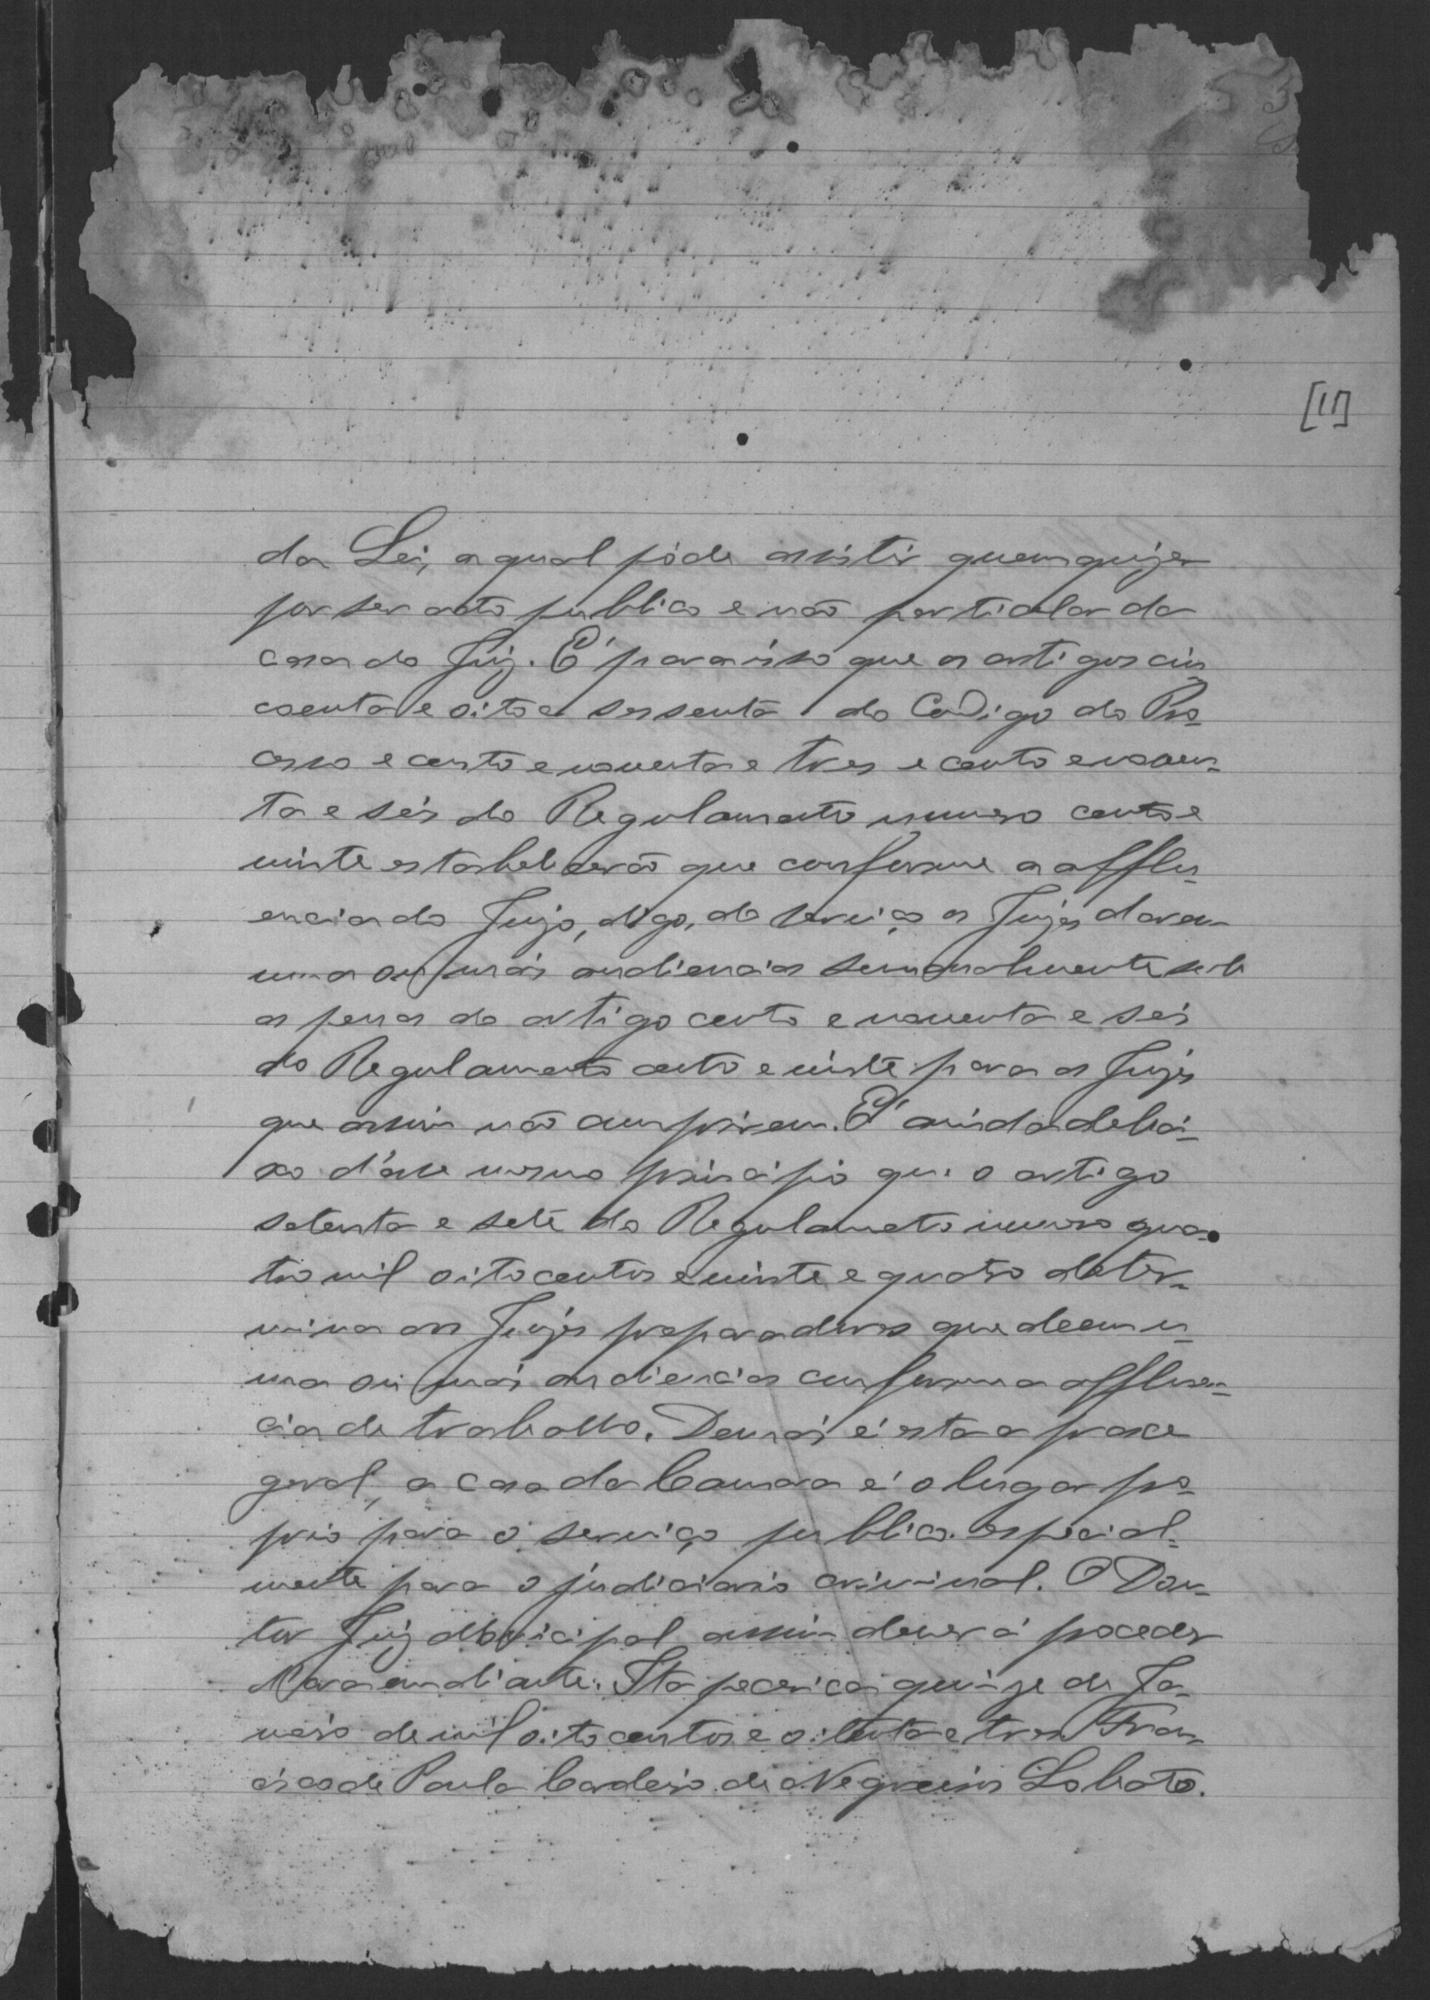 [11]
da Lei, a qual póde assistir quem quizer
por ser acto publico e não particular da
casa do Juiz. É para isso que os artigos cin
coenta e oito e sessenta do Codigo do Pro-
cesso e cento e noventa e tres e cento e noven-
ta e seis do Regulamento numero cento e
vinte estabelecerão que conforme a afflu-
encia do Juizo, digo, do serviço os Juizes daram
uma ou mais audiencias semanalmente sob
as penas do artigo cento e noventa e seis
do Regulamento cento e vinte para os Juizes
que assim não cumprirem. É ainda debai-
xo d'esse mesmo principio que o artigo
setenta e sete do Regulameto numero qua-
tro mil oito centos e vinte e quatro deter-
mina aos Juizes preparadores que deem u-
ma ou mais audiencias conforme a affluen-
cia de trabalho. Demais é esta a praxe
geral, a casa da Camara é o lugar pro-
prio para o serviço publico especial-
mente para o judiciario criminal. O Dou-
tor Juiz Municipal assim deverá proceder
d'ora em diante. Itapecerica quinze de Ja-
neiro de mil oito centos e oitenta e tres Fran-
cisco de Paula Cordeiro de Negreiros Lobato.